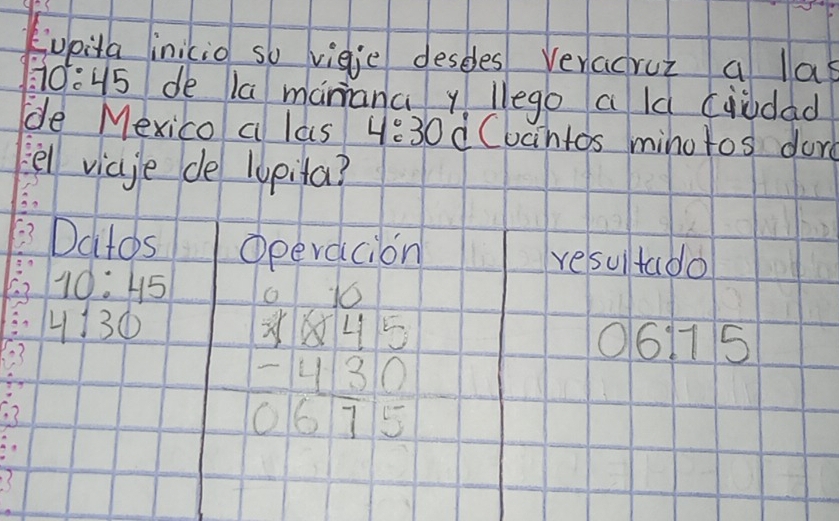 Lupita inicio su viaje desdes Veracruz a las
10:45 de la mañana y llego a la Ciudad
de Mexico a las 4:30 ¿Cuantos minutos duro
el viaje de lupita?
Datos Operación resultado
10:45 0 10
4:30 1045 06:15
- 430
0615